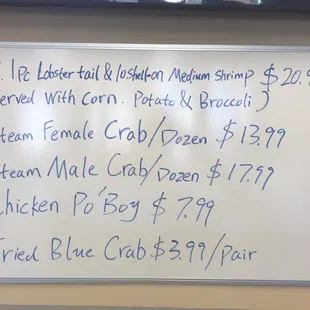 . 1 Pc Lobster tail & 10 shell-on Medium Shrimp $20.9
erved With Corn. Potato & Broccoli )
team Female Crab/Dozen $13.99
team Male Crab/Dozen $17.99
hicken Po'Boy $7.99
ried Blue Crab $3.99/Pair